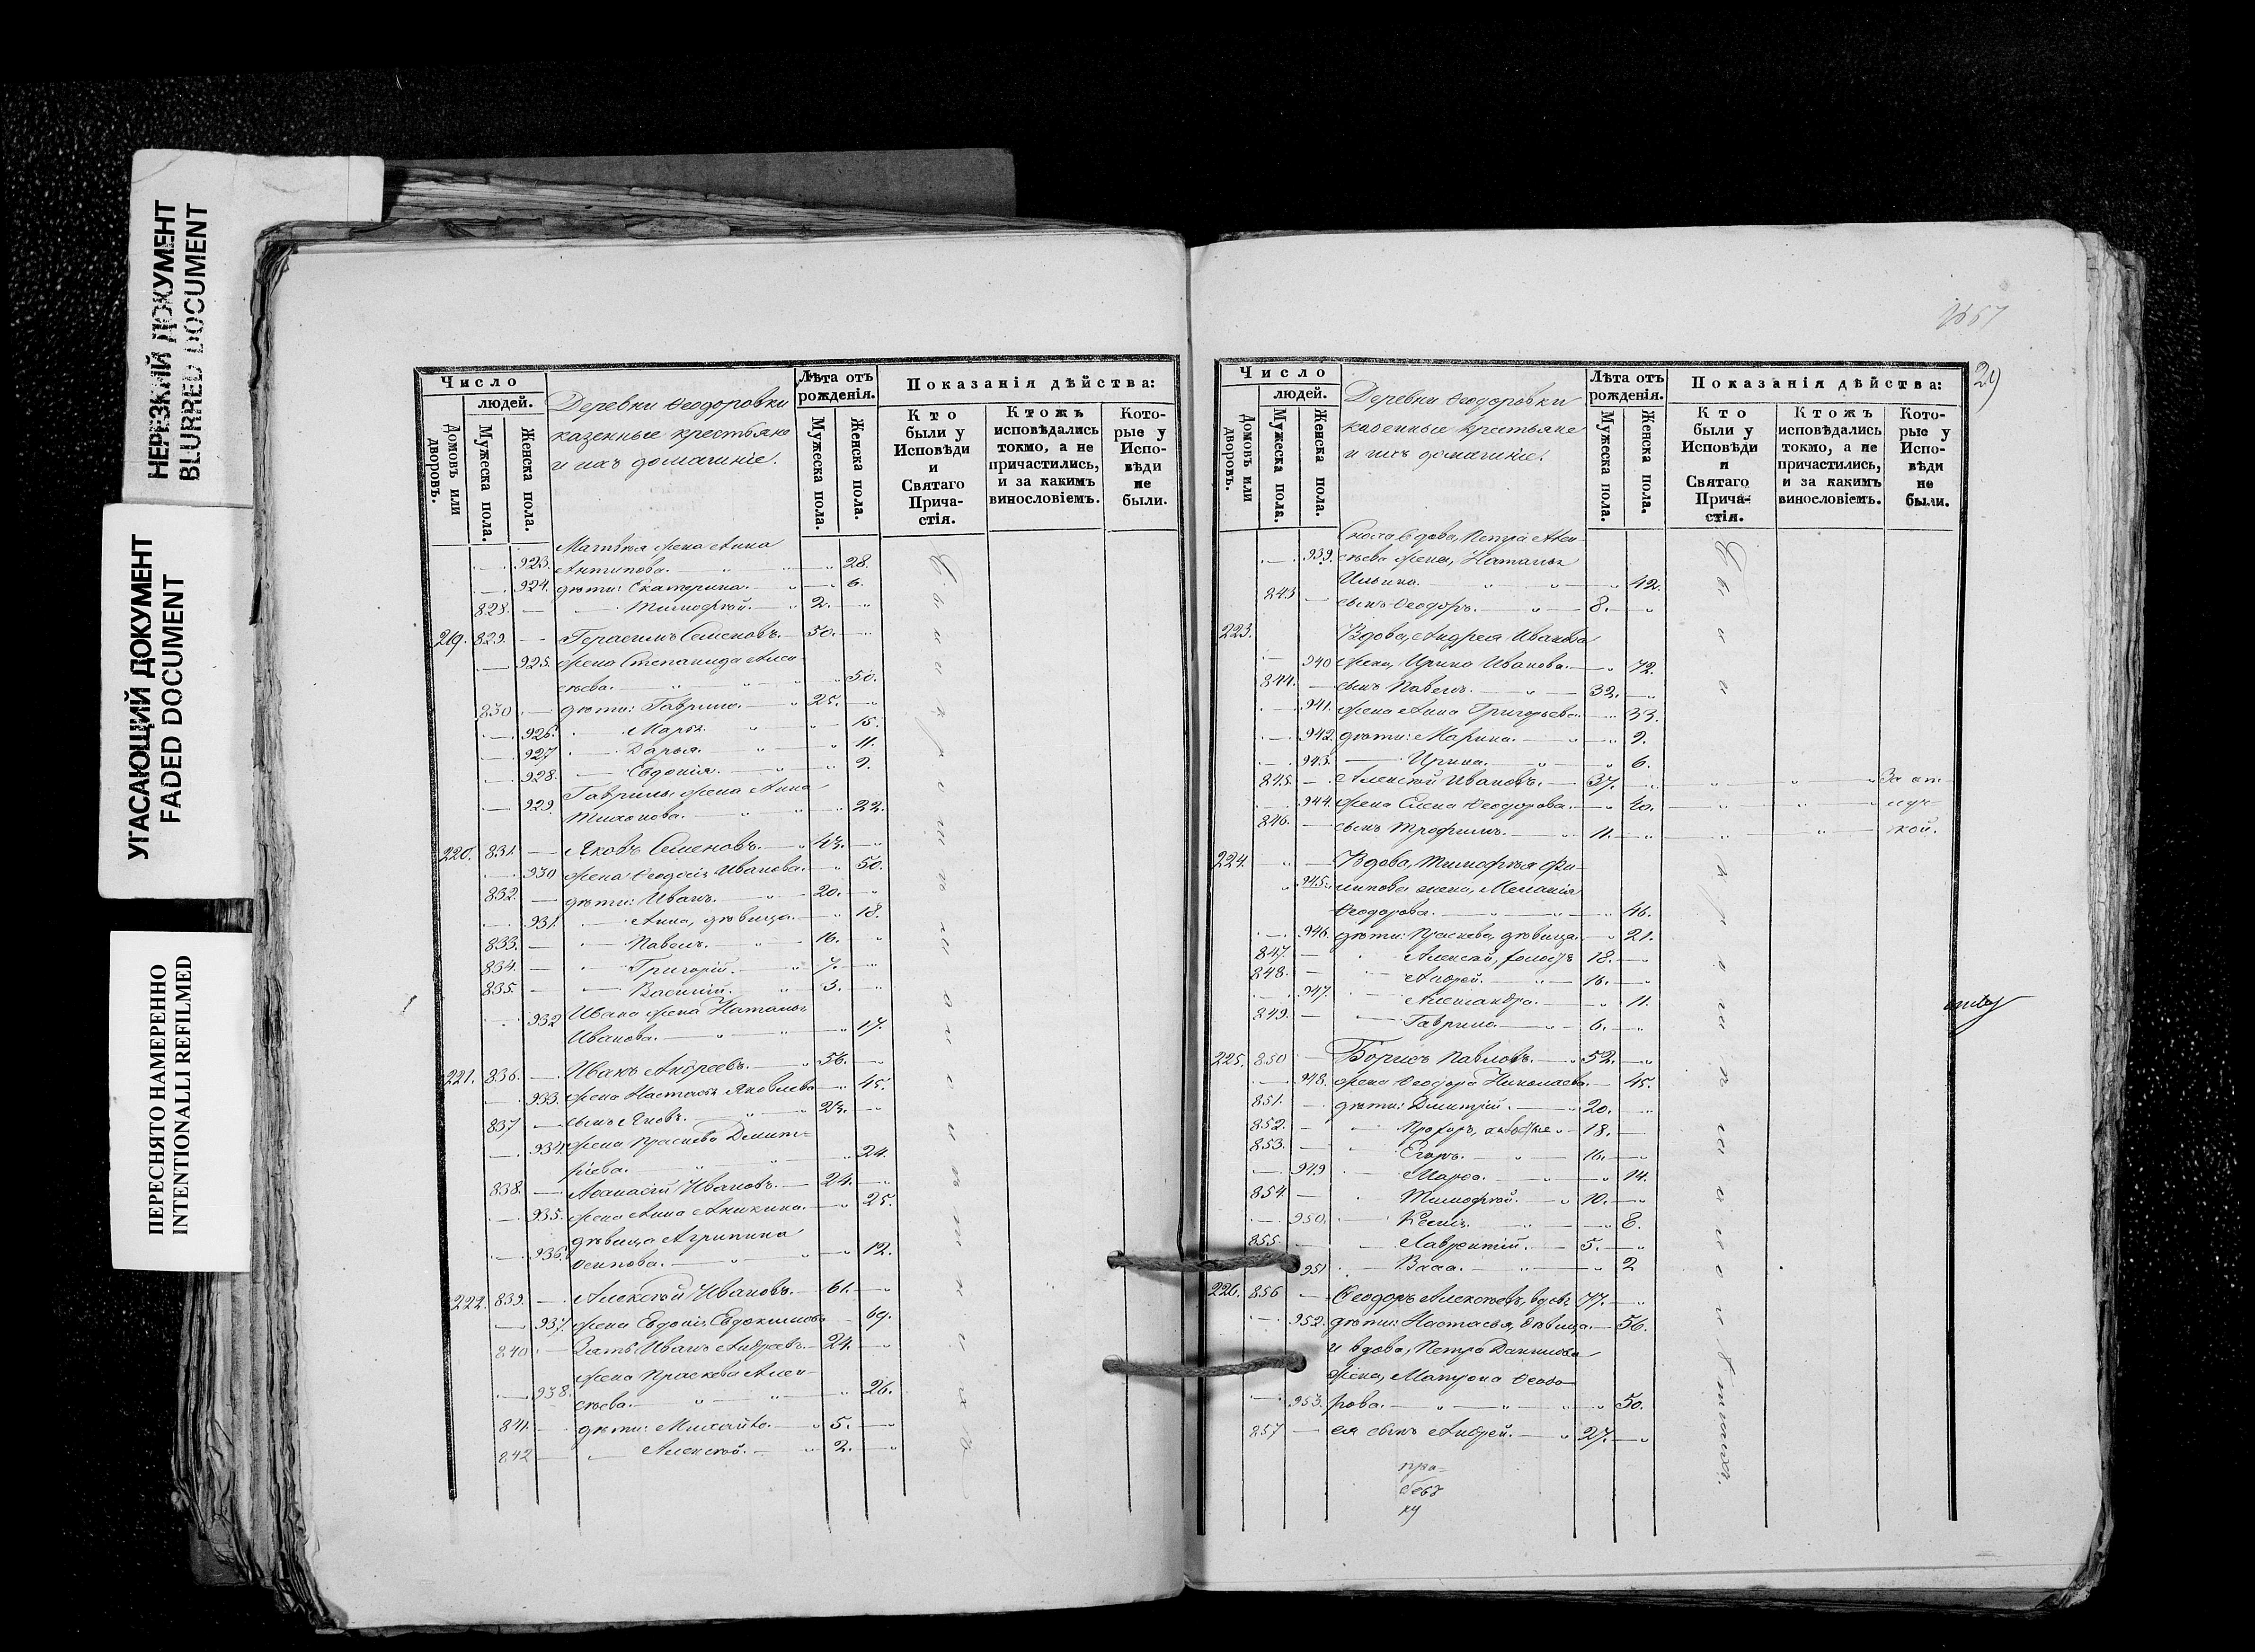 НЕРЕЗКИЙ ДОКУМЕНТ
BLURRED DOCUMENT
УГАСАЮЩИЙ ДОКУМЕНТ
FADED DOCUMENT
ПЕРЕСНЯТО НАМЕРЕННО
INTENTIONALLI REFILMED
Число
людей.
Домовъ или дворовъ.
Мужеска пола.
Женска пола.
Деревни Ѳеодоровки
казенные крестьяне
и ихъ домашніе.
Лѣта отъ рожденія.
Мужеска пола.
Женска пола.
Показанія дѣйства:
Кто были у Исповѣди и Святаго Прича-стія.
Ктожъ исповѣдались токмо, а не причастились, и за какимъ винословіемъ.
Кото-рые у Испо-вѣди не были.
Матвѣя жена Анна
923. Антипова. 28.
924. дѣти: Екатерина. 6.
828. Тимофей. 2.
219. 829. Герасимъ Семеновъ. 50.
925. жена Степанида Алек-
сѣева. 50.
830 дѣти: Гаврило. 25.
926. Марья. 15.
927 Дарья. 11.
928. Евдокія. 9.
Гаврилы жена Анна
929. Тихонова. 22.
220. 831. Яковъ Семеновъ. 43.
930 жена Ѳеодосія Иванова. 50.
832. дѣти: Иванъ. 20.
931. Анна, дѣвица. 18.
833. Павелъ. 16.
834. Григорій. 7.
835. Василій. 3.
932 Ивана жена Наталья
Иванова. 17.
221. 836. Иванъ Андреевъ. 56.
933. жена Настасья Яковлева 45.
837 сынъ Яковъ. 23.
934. жена Праскева Димит-
ріева. 24.
838. Аѳанасій Ивановъ. 24.
935. жена Анна Аникина. 25.
дѣвица Агрипина
936. Осипова. 12.
222. 839. Алексѣй Ивановъ. 61.
937. жена Евдокія Евдокимова 69.
840 Зять Иванъ Андреевъ. 24.
жена Праскева Алек-
938. сѣева. 26.
841. дѣти: Михайло. 5.
842 Алексѣй. 2.
29
Число
людей.
Домовъ или дворовъ.
Мужеска пола.
Женска пола.
Деревни Ѳеодоровки
казенные крестьяне
и ихъ домашніе.
Лѣта отъ рожденія.
Мужеска пола.
Женска пола.
Показанія дѣйства:
Кто были у Исповѣди и Святаго Прича-стія.
Ктожъ исповѣдались токмо, а не причастились, и за какимъ винословіемъ.
Кото-рые у Испо-вѣди не были.
Сноха вдова, Петра Алек-
939. сѣева жена, Наталья
Ильина. 42.
843 сынъ Ѳеодоръ. 8.
223. Вдова, Андрея Иванова
940 жена, Ирина Иванова. 72.
844. сынъ Павелъ. 32.
941. жена Анна Григорьева. 33.
942. дѣти: Марина. 9.
943. Ирина. 6.
845. Алексѣй Ивановъ. 37. За от-
944. жена Елена Ѳеодорова. 40. луч-
846. сынъ Трофимъ. 11. кой.
224. Вдова, Тимофея Фи-
945. липова жена, Меланія
Ѳеодорова. 46.
946. дѣти: Праскева, дѣвица. 21.
847. Алексѣй, холостъ 18.
848. Андрей. 16.
947. Александра. 11.
849. Гаврило. 6.
225. 850 Борисъ Павловъ. 52.
948. жена Ѳеодора Николаева. 45.
851. дѣти: Димитрій. 20.
852. Прохоръ, 18.
853. Егоръ. 16.
949 Марѳа. 14.
854. Тимофей. 10.
950. 8.
855. Лаврентій. 5.
951 Васса. 2
226. 856 Ѳеодоръ Алексѣевъ, вдовъ 77.
952. дѣти: Настасья, дѣвица. 56.
и вдова, Петра Данилова
жена, Матрона Ѳеодо-
953. рова. 50.
857 ея сынъ Андрей. 27.